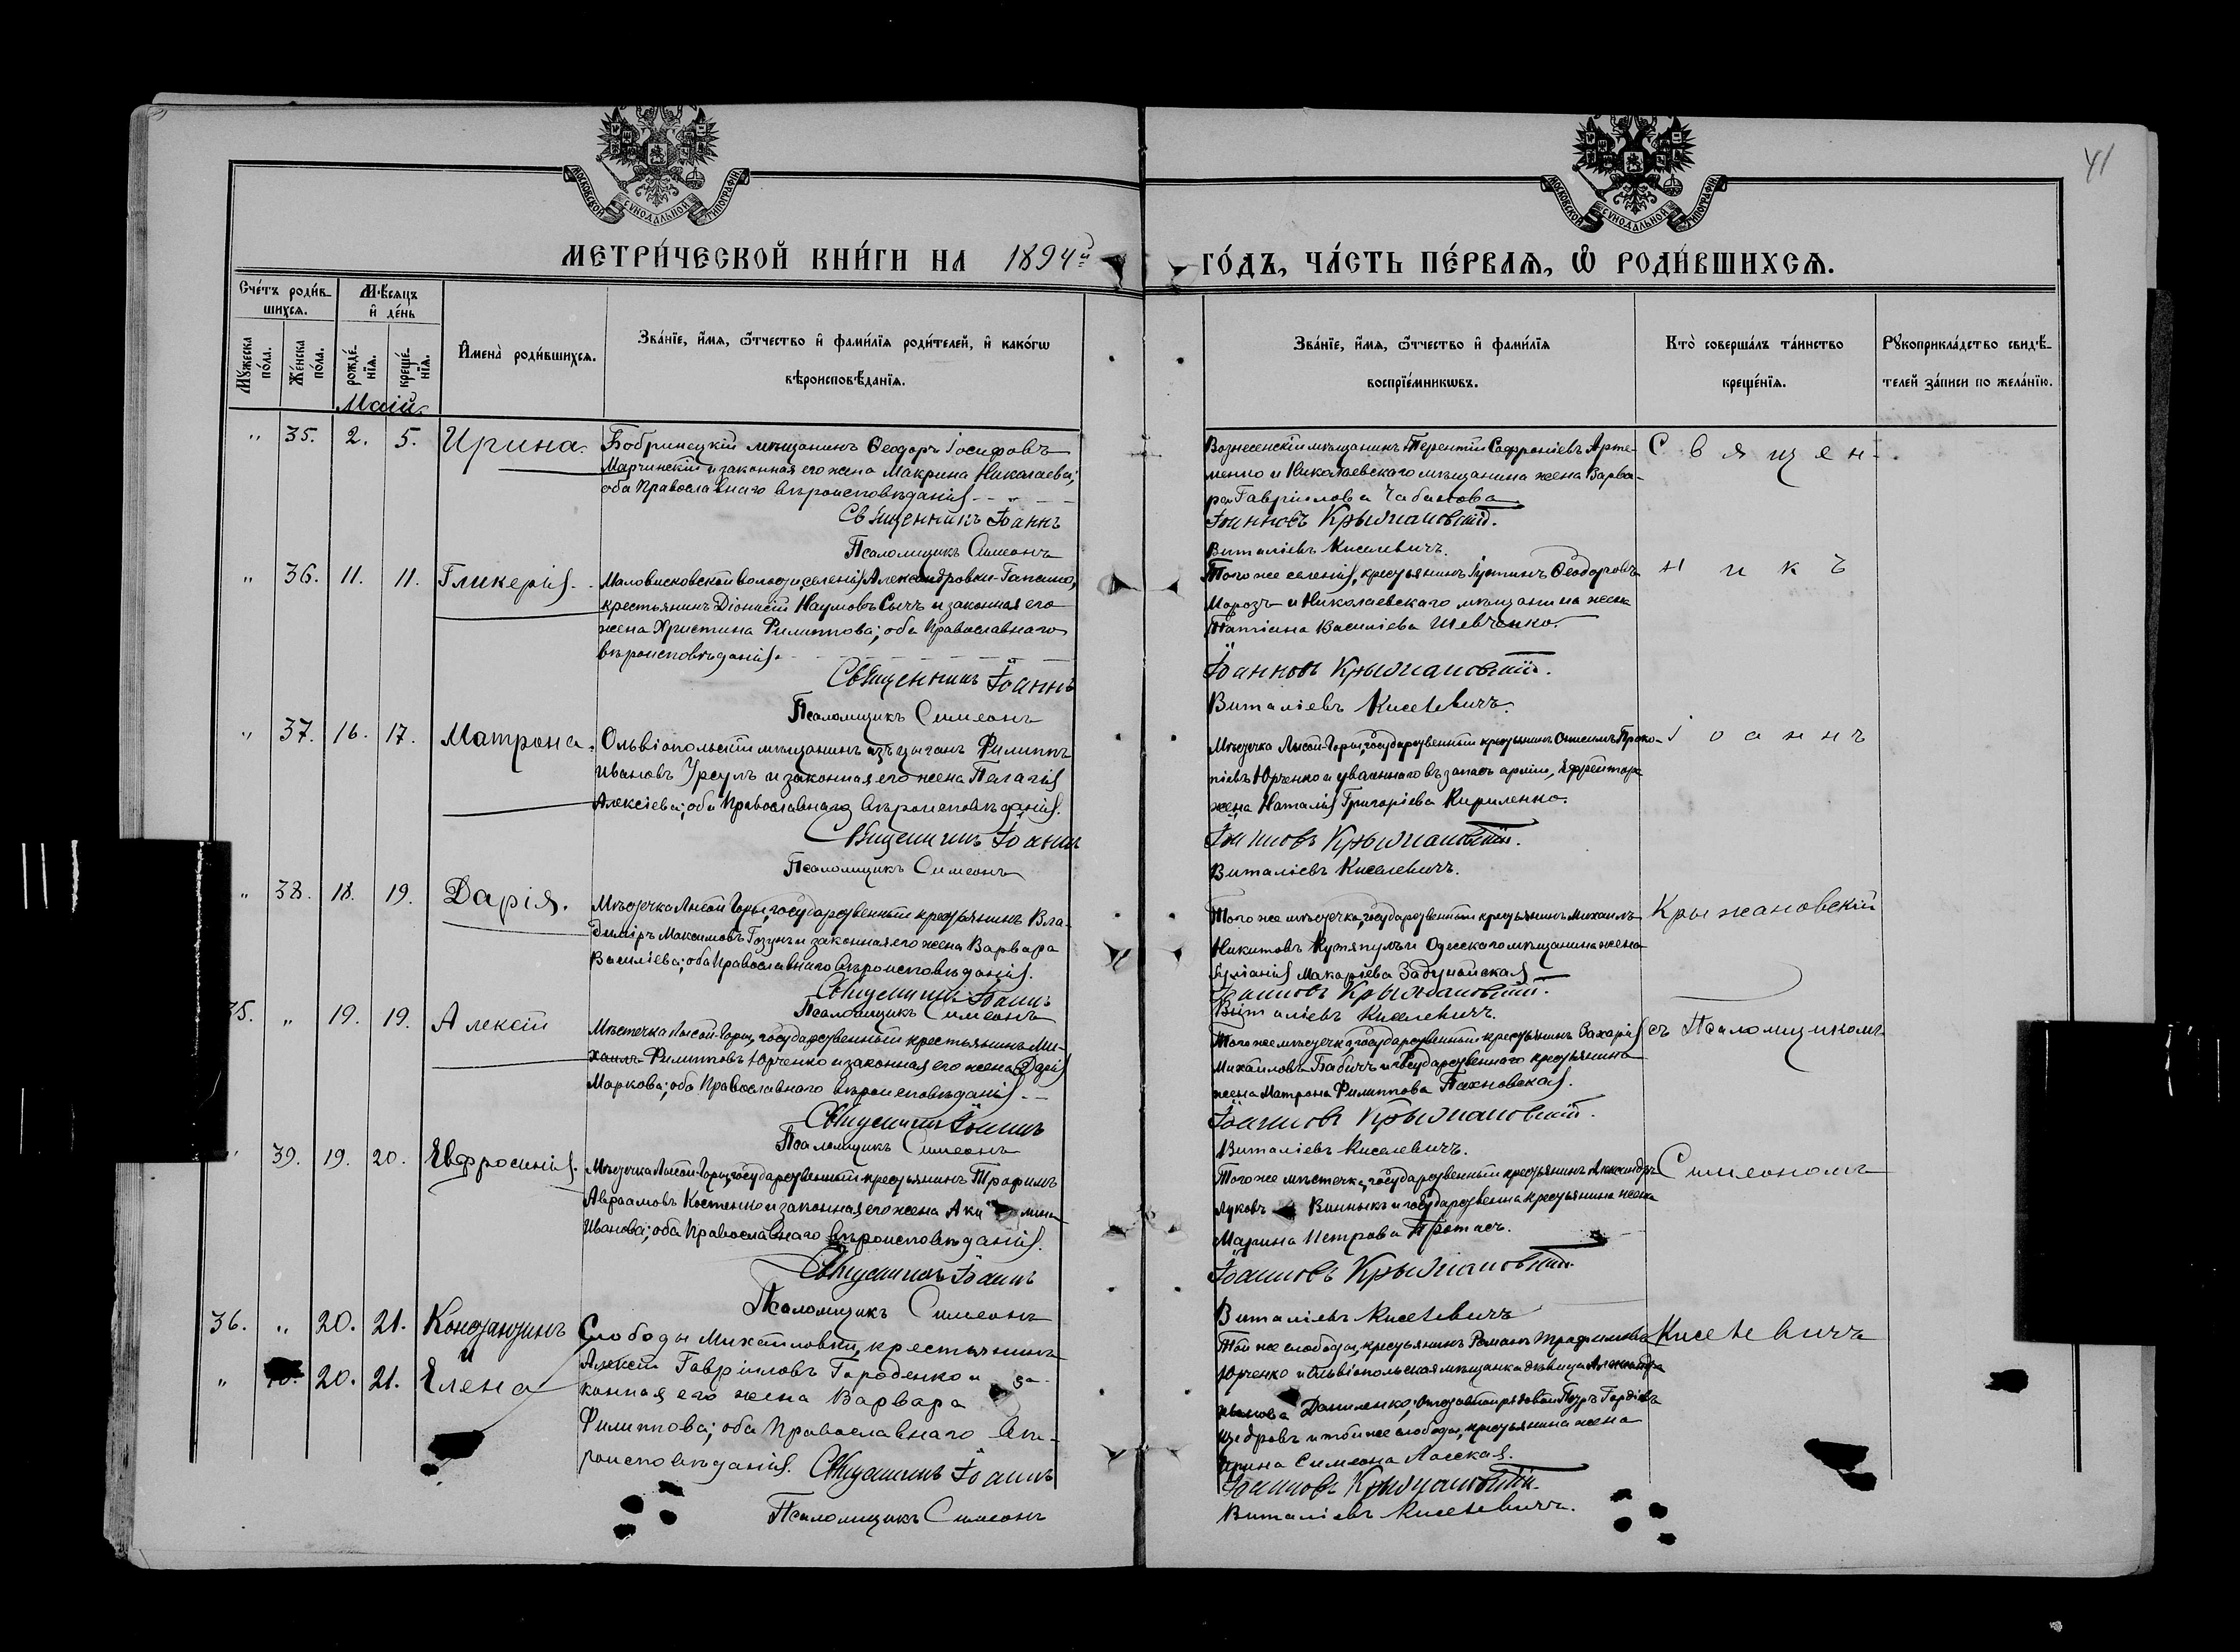 41
МОСКОВСКОЙ СѴНОДАЛЬНОЙ ТИПОГРАФІИ
МОСКОВСКОЙ СѴНОДАЛЬНОЙ ТИПОГРАФІИ
МЕТРИ́ЧЕСКОЙ КНИ́ГИ НА 1894й
ГО́ДЪ, ЧА́СТЬ ПЕ́РВАѦ, Ѡ҆ РОДИ́ВШИХСѦ.
Сче́тъ роди́в-
шихсѧ.
Мѣ́сѧцъ
и҆ де́нь
Мꙋ́жеска по́ла.
Же́нска по́ла.
рожде́-
нїѧ.
креще́-
нїѧ.
И҆мена̀ роди́вшихсѧ.
Зва́нїе, и҆́мѧ, ѻ҆́тчество и҆ фами́лїѧ роди́телей, и҆ како́гѡ
вѣроисповѣ́данїѧ.
Зва́нїе, и҆́мѧ, ѻ҆́тчество и҆ фами́лїѧ
воспрїе́мникѡвъ.
Кто̀ соверша́лъ та́инство
креще́нїѧ.
Рꙋкоприкла́дство свидѣ́-
телей за́писи по жела́нїю.
Маій.
" 35. 2. 5. Ирина.
Бобринецкій мѣщанинъ Ѳеодоръ Іосифовъ
Марчинскій и законная его жена Макрина Николаева;
оба Православнаго вѣроисповѣданія
Священникъ Іоаннъ
Псаломщикъ Симеонъ
Вознесенскій мѣщанинъ Терентій Софроніевъ Арте-
менко и Николаевскаго мѣщанина жена Варва-
ра Гавріилова
Іоанновъ Крыжановскій.
Виталіевъ Киселевичъ.
Священ-
" 36. 11. 11. Гликерія.
Маловисковской волости, селенія Александровки-
крестьянинъ Діонисій Наумовъ Сычъ и законная его
жена Христина Филиппова; оба Православнаго
вѣроисповѣданія.
Священникъ Іоаннъ
Псаломщикъ Симеонъ
Того же селенія, крестьянинъ Іустинъ Ѳеодоровъ
Морозъ и Николаевскаго мѣщанина жена
Татіана Василіева Шевченко.
Іоанновъ Крыжановскій.
Виталіевъ Киселевичъ.
никъ
" 37. 16. 17. Матрона.
Ольвіопольскій мѣщанинъ изъ цыганъ Филиппъ
Ивановъ Урсулъ и законная его жена Пелагія
Алексіева; оба Православнаго вѣроисповѣданія.
Священникъ Іоаннъ
Псаломщикъ Симеонъ
Мѣстечка Лысой-Горы, государственный крестьянинъ Онисимъ Проко-
піевъ Юрченко и уволеннаго въ запасъ арміи, Ефрейтора
жена Наталія Григоріева Кириленко.
Іоанновъ Крыжановскій.
Виталіевъ Киселевичъ.
Іоаннъ
" 38. 18. 19. Дарія.
Мѣстечка Лысой Горы, государственный крестьянинъ Вла-
диміръ Максимовъ и законная его жена Варвара
Василіева; оба Православнаго вѣроисповѣданія.
Священникъ Іоаннъ
Псаломщикъ Симеонъ
Того же мѣстечка, государственный крестьянинъ Михаилъ
Никитовъ и Одесскаго мѣщанина жена
Іуліанія Макаріева Задунайская
Іоанновъ Крыжановскій.
Виталіевъ Киселевичъ.
Крыжановскій
35. " 19. 19. Алексій
Мѣстечка Лысой-Горы, государственный крестьянинъ Ми-
хаилъ Филипповъ Юрченко и законная его жена
Маркова; оба Православнаго вѣроисповѣданія.
Священникъ Іоаннъ
Псаломщикъ Симеонъ
Того же мѣстечка, государственный крестьянинъ Захарія
Михаиловъ Бабичъ и государственнаго крестьянина
жена Матрона Филиппова Пахновская.
Іоанновъ Крыжановскій.
Виталіевъ Киселевичъ.
съ Псаломщикомъ
" 39. 19. 20. Евфросинія.
Мѣстечка Лысой-Горы, государственный крестьянинъ Трофимъ
Авраамовъ Костенко и законная его жена
Иванова; оба Православнаго вѣроисповѣданія.
Священникъ Іоаннъ
Псаломщикъ Симеонъ
Того же мѣстечка, государственный крестьянинъ Александръ
Луковъ Винныкъ и государственна крестьянина жена
Марина Петрова Протасъ.
Іоанновъ Крыжановскій.
Виталіевъ Киселевичъ
Симеономъ
36. " 20. 21. Константинъ
и
" 20. 21. Елена
Слободы Михайловки, крестьянинъ
Алексій Гавріиловъ Городенко и за-
конная его жена Варвара
Филиппова; оба Православнаго вѣ-
роисповѣданія. Священникъ Іоаннъ
Псаломщикъ Симеонъ
Той же слободы, крестьянинъ Романъ Трофимовъ
Юрченко и Ольвіопольская мѣщанка дѣвица Александра
Даниленко; рядовой Петръ Гордіевъ
Щедровъ и той же слободы, крестьянина жена
Ирина Симеона
Іоанновъ Крыжановскій.
Виталіевъ Киселевичъ.
Киселевичъ